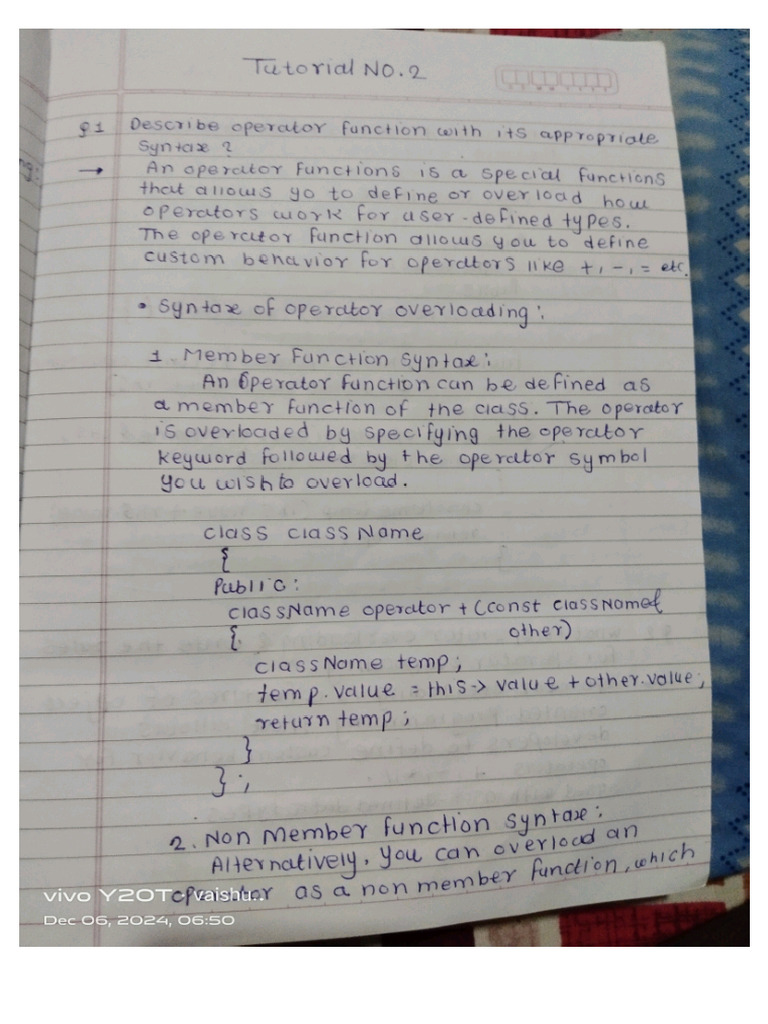 Tutorial NO. 2
Q1 Describe operator function with its appropriate
syntax ?
→ An operator functions is a special functions
that allows yo to define or overload how
operators work for user-defined types.
The operator function allows you to define
custom behavior for operators like +, -, = etc.
• Syntax of operator overloading :
1. Member Function Syntax :
An operator function can be defined as
a member function of the class. The operator
is overloaded by specifying the operator
keyword followed by the operator symbol
you wish to overload.
class className
{
Public :
className operator + (const className&
{ other)
className temp ;
temp.value = this-> value + other.value ;
return temp ;
}
} ;
2. Non Member function syntax :
Alternatively, you can overload an
operator as a non member function, which
vivo Y20T · vaishu..
Dec 06, 2024, 06:50